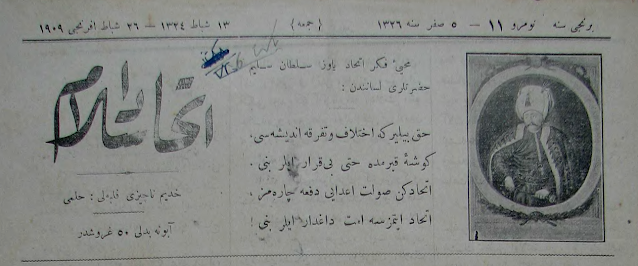 برنجی سنه نومرو ۱۱ — ۵ صفر سنه ۱۳۲۶ (جمعه) ۱۳ شباط ۱۳۲۴ — ۲۶ شباط افرنجی ۱۹۰۹
اتحاد اسلام
خدیم ناچیزی : حلمی
آبونه بدلی ۵۰ غروشدر
محیئ فکر اتحاد یاوز سلطان سلیم
حضرتلری لسانندن :
حق بیلیر که اختلاف و تفرقه اندیشه سی،
کوشهٔ قبرمده حتی بی قرار ایلر بنی .
اتحادکن صولت اعدایی دفعه چاره مز ،
اتحاد ایتمزسه امت داغدار ایلر بنی !